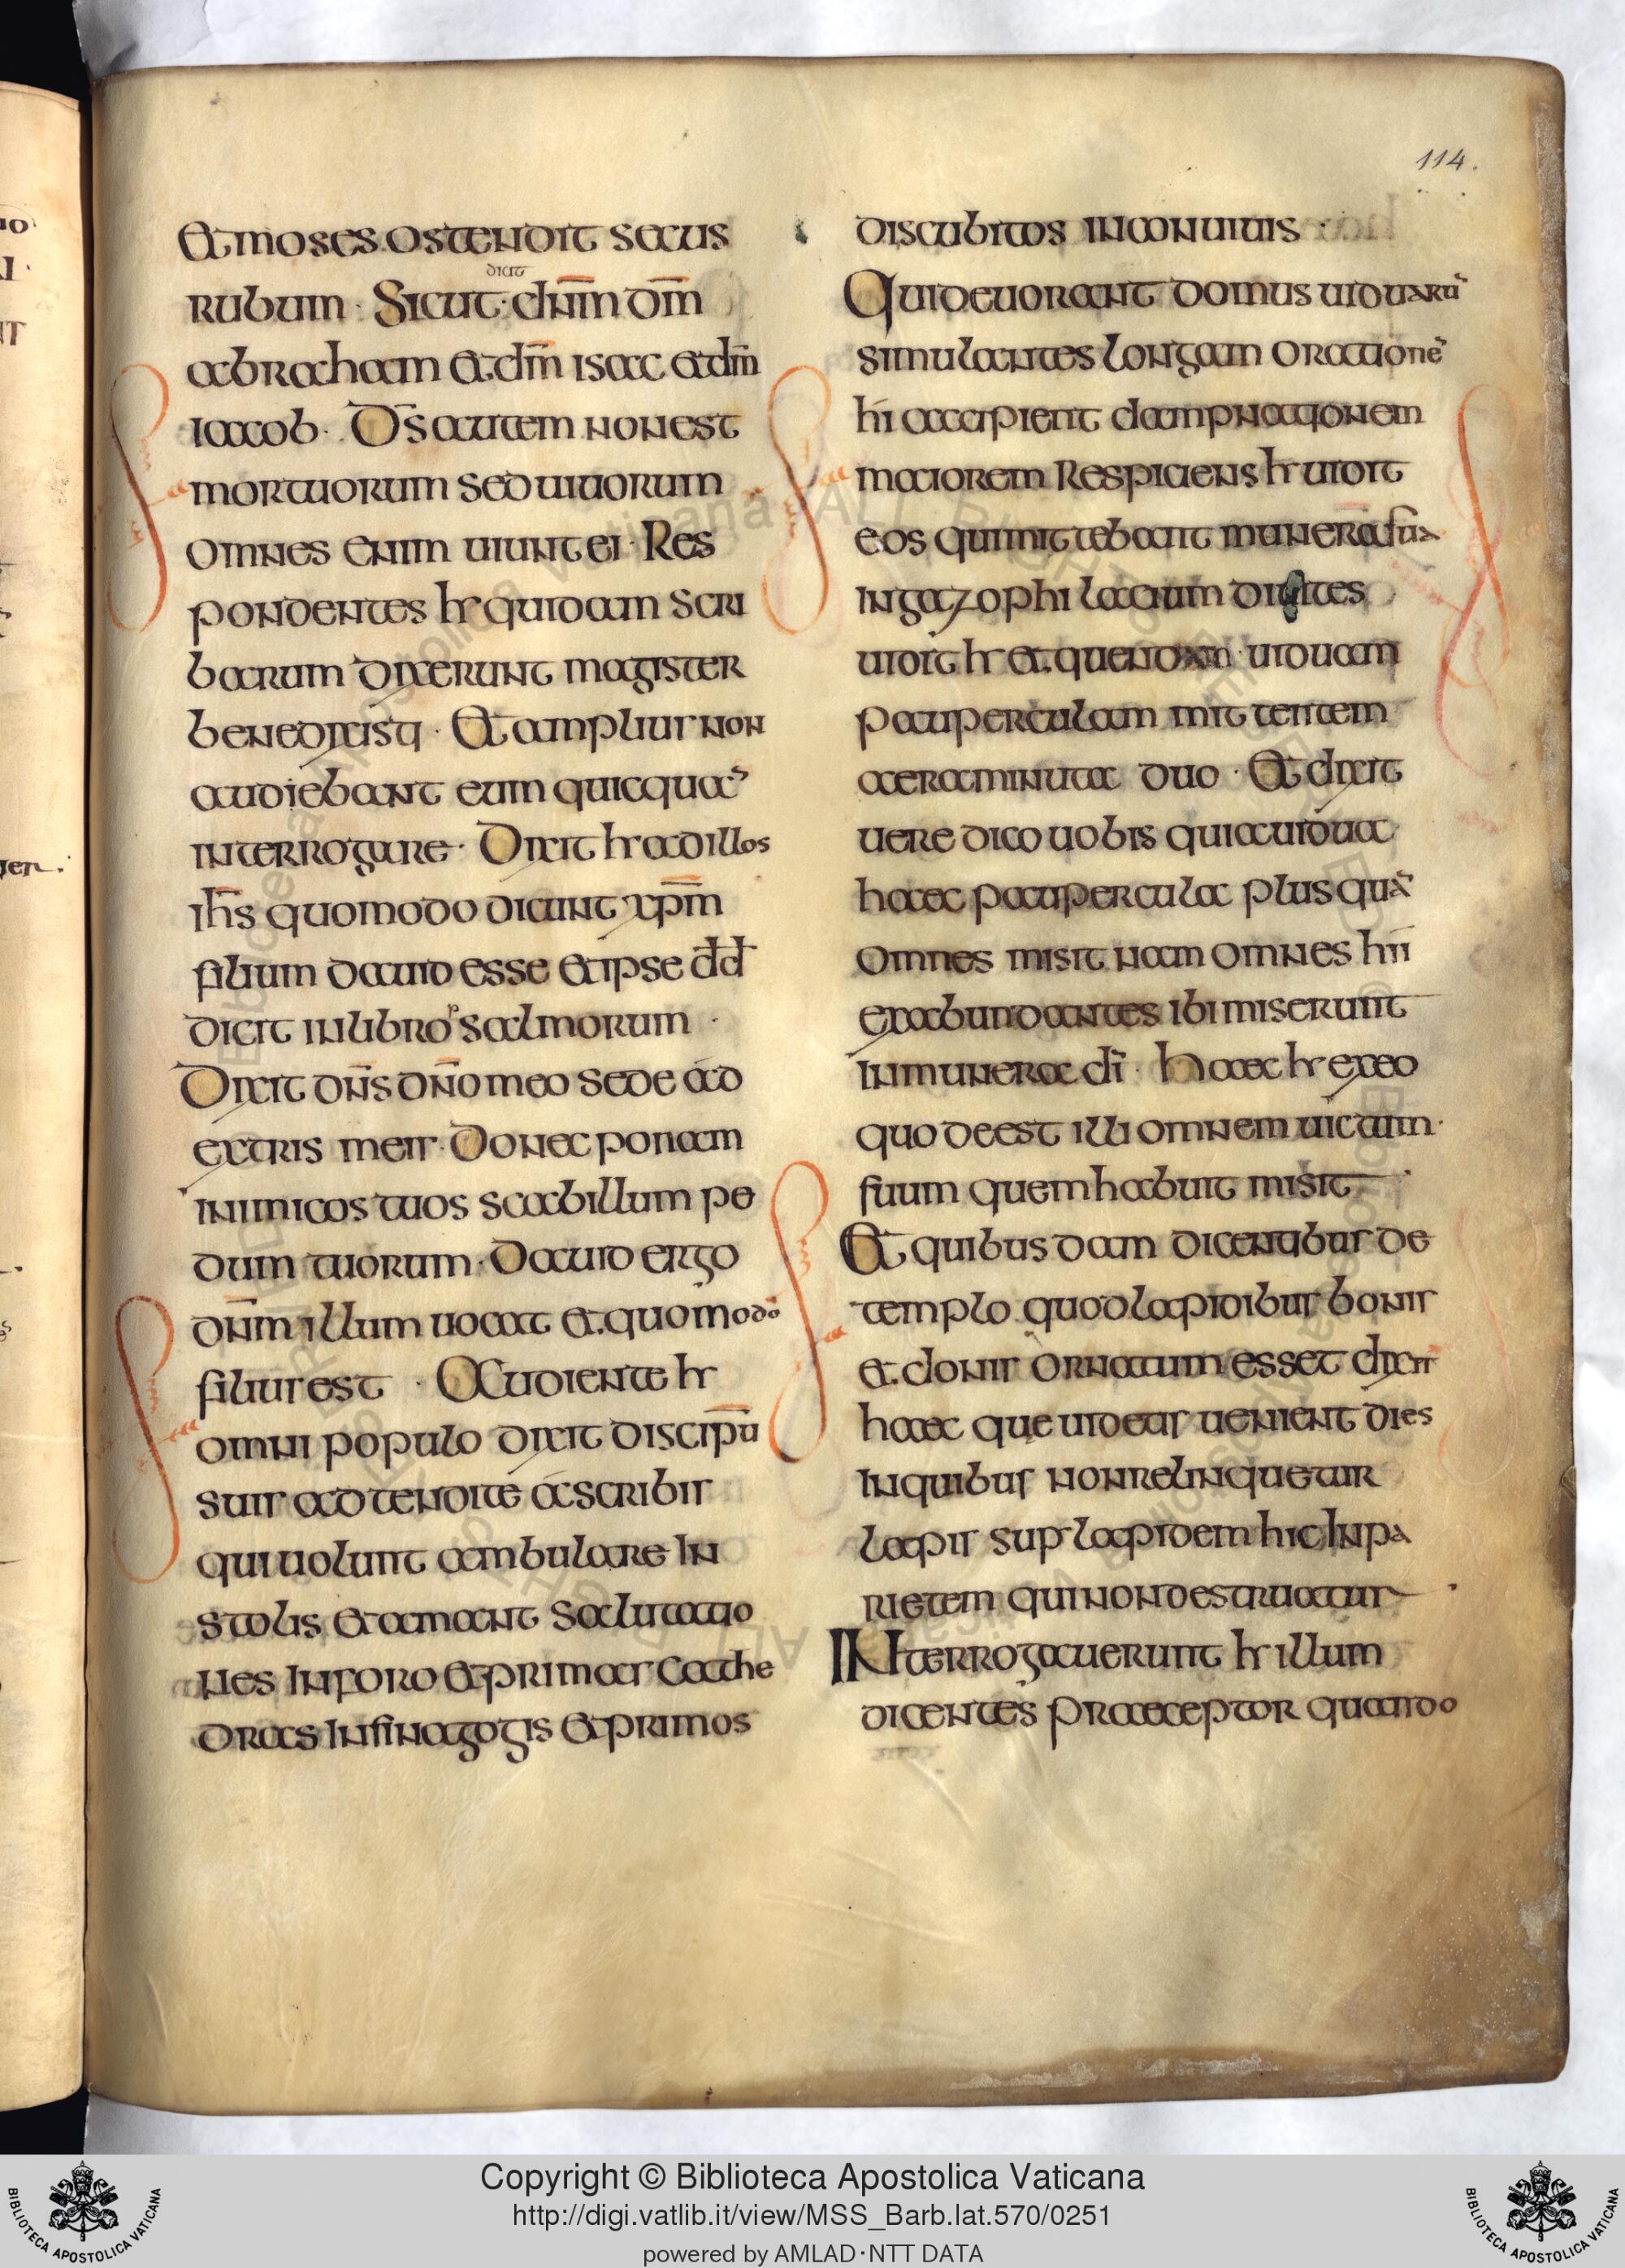 114.
Et moses ostendit secus
rubum · Sicut · dicit dn̄m dm̄
abraham et dm̄ isac et dm̄
iacob · Ds̄ autem non est
mortuorum sed uiuorum
omnes enim uiunt ei · Res
pondentes hr quidam scri
barum dixerunt magister
benedixisti · Et amplius non
audiebant eum quicqua
interrogare · Dixit hr ad illos
ihs̄ quomodo dicunt xpm̄
filium dauid esse et ipse dd̄
dicit in libro psalmorum ·
Dixit dn̄s dn̄o meo sede ad
extris meis · Donec ponam
inimicos tuos scabillum pe
dum tuorum · Dauid ergo
dn̄m illum uocat et quomodo
filius est · Audiente hr
omni populo dixit discipū
suis adtendite a scribis
qui uolunt ambulare in
stolis et amant salutatio
nes in foro et primas cathe
dras in sinagogis et primos
discubitos in conuiuis ·
Qui deuorant domus uiduarū
simulantes longam orationē
hi accipient dampnationem
maiorem Respiciens hr uidit
eos qui mittebant munera sua
in gazophilacium diuites
uidit hr et quendam uiduam
pauperculam mittentem
aera minuta duo · Et dixit
uere dico uobis quia uidua
haec paupercula plus quā
omnes misit nam omnes hii
ex abundantes ibi miserunt
in munera dī · haec hr ex eo
quo deest illi omnem uictum
suum quem habuit misit ·
Et quibusdam dicentibus de
templo quod lapidibus bonis
et donis ornatum esset dixit
haec que uidetis uenient dies
in quibus non relinquetur
lapis sup lapidem hic in pa
rietem qui non destruatur ·
INterrogauerunt hr illum
dicentes praeceptor quando
Copyright © Biblioteca Apostolica Vaticana
http://digi.vatlib.it/view/MSS_Barb.lat.570/0251
powered by AMLAD·NTT DATA
BIBLIOTECA APOSTOLICA VATICANA
BIBLIOTECA APOSTOLICA VATICANA